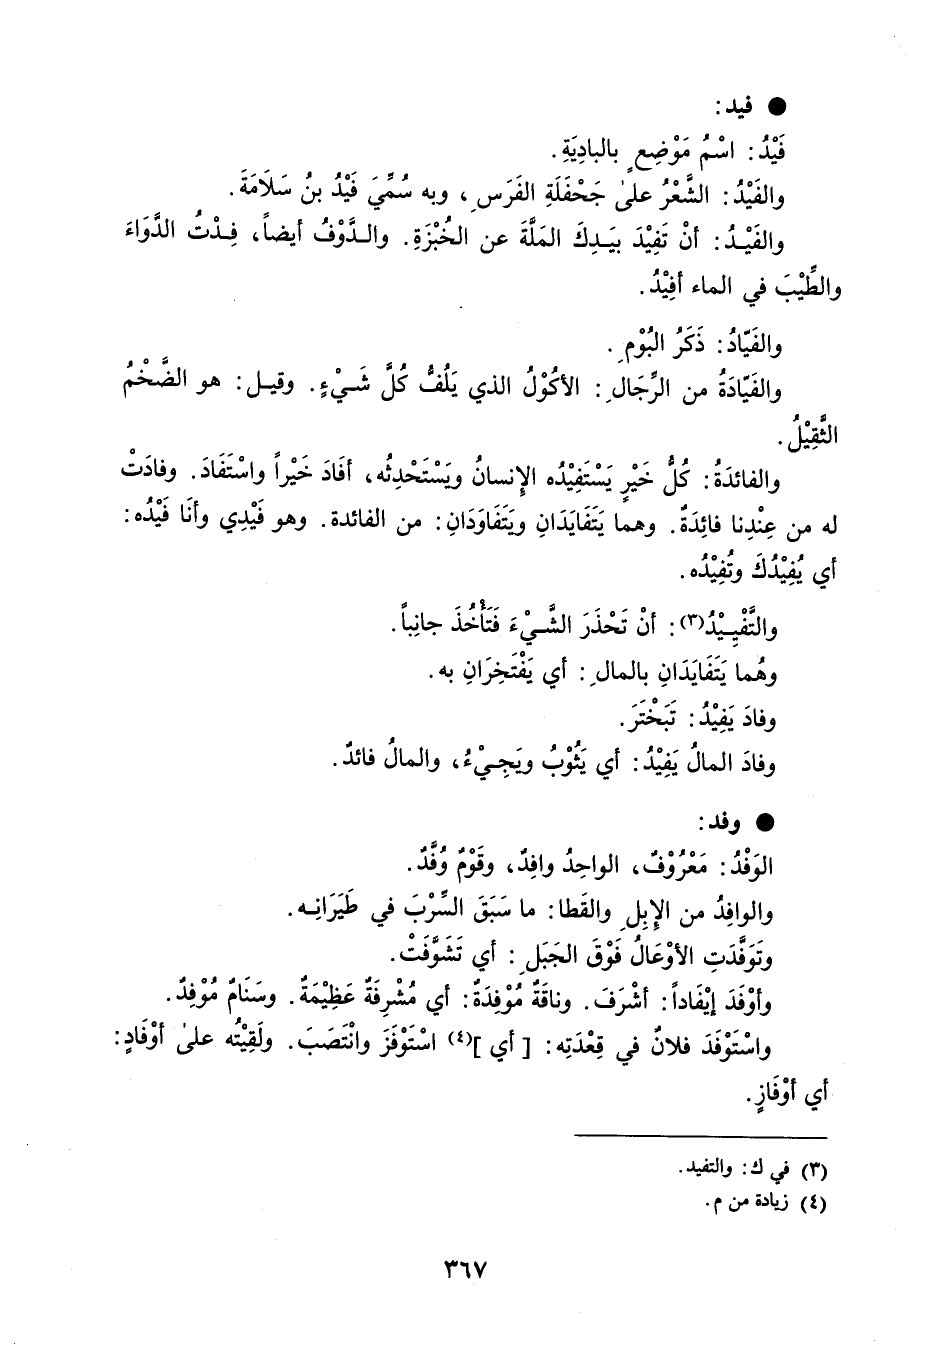 ● فيد:
فَيْدُ: اسْمُ مَوْضِعٍ بالبادِيَةِ.
والفَيْدُ: الشَّعْرُ علىٰ جَحْفَلَةِ الفَرَسِ، وبه سُمِّيَ فَيْدُ بنُ سَلَامَةَ.
والفَيْـدُ: أنْ تَفِيْدَ بيَـدِكَ المَلَّةَ عن الخُبْزَةِ. والـدَّوْفُ أيضاً، فِـدْتُ الدَّوَاءَ
والطِّيْبَ في الماء أفِيْدُ.
والفَيّادُ: ذَكَرُ البُوْمِ.
والفَيّادَةُ من الرِّجَالِ: الأكُوْلُ الذي يَلُفُّ كُلَّ شَـيْءٍ. وقيـل: هو الضَّخْمُ
الثَّقِيْلُ.
والفائدَةُ: كُلُّ خَيْرٍ يَسْتَفِيْدُه الإِنسانُ ويَسْتَحْدِثُه، أفَادَ خَيْراً واسْتَفَادَ. وفادَتْ
له من عِنْدِنا فائِدَةٌ. وهما يَتَفَايَدَانِ ويَتَفَاوَدَانِ: من الفائدة. وهو فَيْدِي وأنَا فَيْدُه:
أي يُفِيْدُكَ وتُفِيْدُه.
والتَّفْيِـيْدُ(٣): أنْ تَحْذَرَ الشَّـيْءَ فَتَأْخُذَ جانِباً.
وهُما يَتَفَايَدَانِ بالمالِ: أي يَفْتَخِرَانِ به.
وفادَ يَفِيْدُ: تَبَخْتَرَ.
وفادَ المالُ يَفِيْدُ: أي يَثُوْبُ ويَجِـيْءُ، والمالُ فائدٌ.
● وفد:
الوَفْدُ: مَعْرُوْفٌ، الواحِدُ وافِدٌ، وقَوْمٌ وُفَّدٌ.
والوافِدُ من الإِبِلِ والقَطا: ما سَبَقَ السِّرْبَ في طَيَرَانِـه.
وتَوَفَّدَتِ الأوْعَالُ فَوْقَ الجَبَلِ: أي تَشَوَّفَتْ.
وأوْفَدَ إيْفَاداً: أشْرَفَ. وناقَةٌ مُوْفِدَةٌ: أي مُشْرِفَةٌ عَظِيْمَةٌ. وسَنَامٌ مُوْفِدٌ.
واسْتَوْفَدَ فلانٌ في قِعْدَتِه: [ أي ](٤) اسْتَوْفَزَ وانْتَصَبَ. ولَقِيْتُه علىٰ أوْفَادٍ:
أي أوْفَازٍ.
(٣) في ك: والتفيد.
(٤) زيادة من م.
٣٦٧